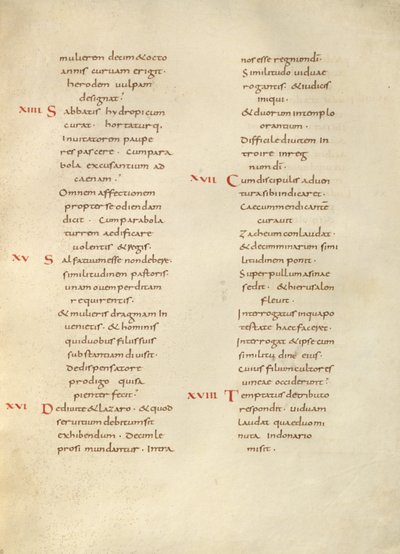 mulierem decim&octo
annis curuam erigit·
herodem uulpam
designat·
XIIII Sabbatis hydropicum
curat· hortatur q·
Inuitatorem paupe
res pascere· Cumpara
bola excusantium ad
caenam·
Omnem affectionem
propterse odiendam
dicit· Cumparabola
turrem aedificare
uolentis &regis·
XV Salfatuum esse nondebere·
similitudinem pastoris·
unam ouem perditam
requirentis·
&mulieris dragmam In
uenietis· &hominis
quiduobus filiis suis
substantiam diuisit·
dedispensatore
prodigo quisa
pienter fecit·
XVI Dediuite&lazaro· &quod
seruitium debitum sit
exhibendum· Decim le
prosi mundantur· Intra
nos esse regnum dī·
Similitudo uiduae
rogantis &iudicis
iniqui·
&duorum intemplo
orantium·
Difficile diuitem in
troire inreg
num dī·
XVII Cumdiscipulis aduen
tura sibi indicaret·
Caecum mendicantē
curauit
Zacheum conlaudat·
&decim minarum simi
litudinem ponit·
Super pullum asinae
sedit· &hierusalem
fleuit·
Interrogatus inquapo
testate haec faceret·
Interrogat &ipse cum
similitudine eius·
Cuius filium cultores
uineae occiderunt·
XVIII Temptatus detributo
respondit· uiduam
laudat quae duo mi
nuta indonario
misit·